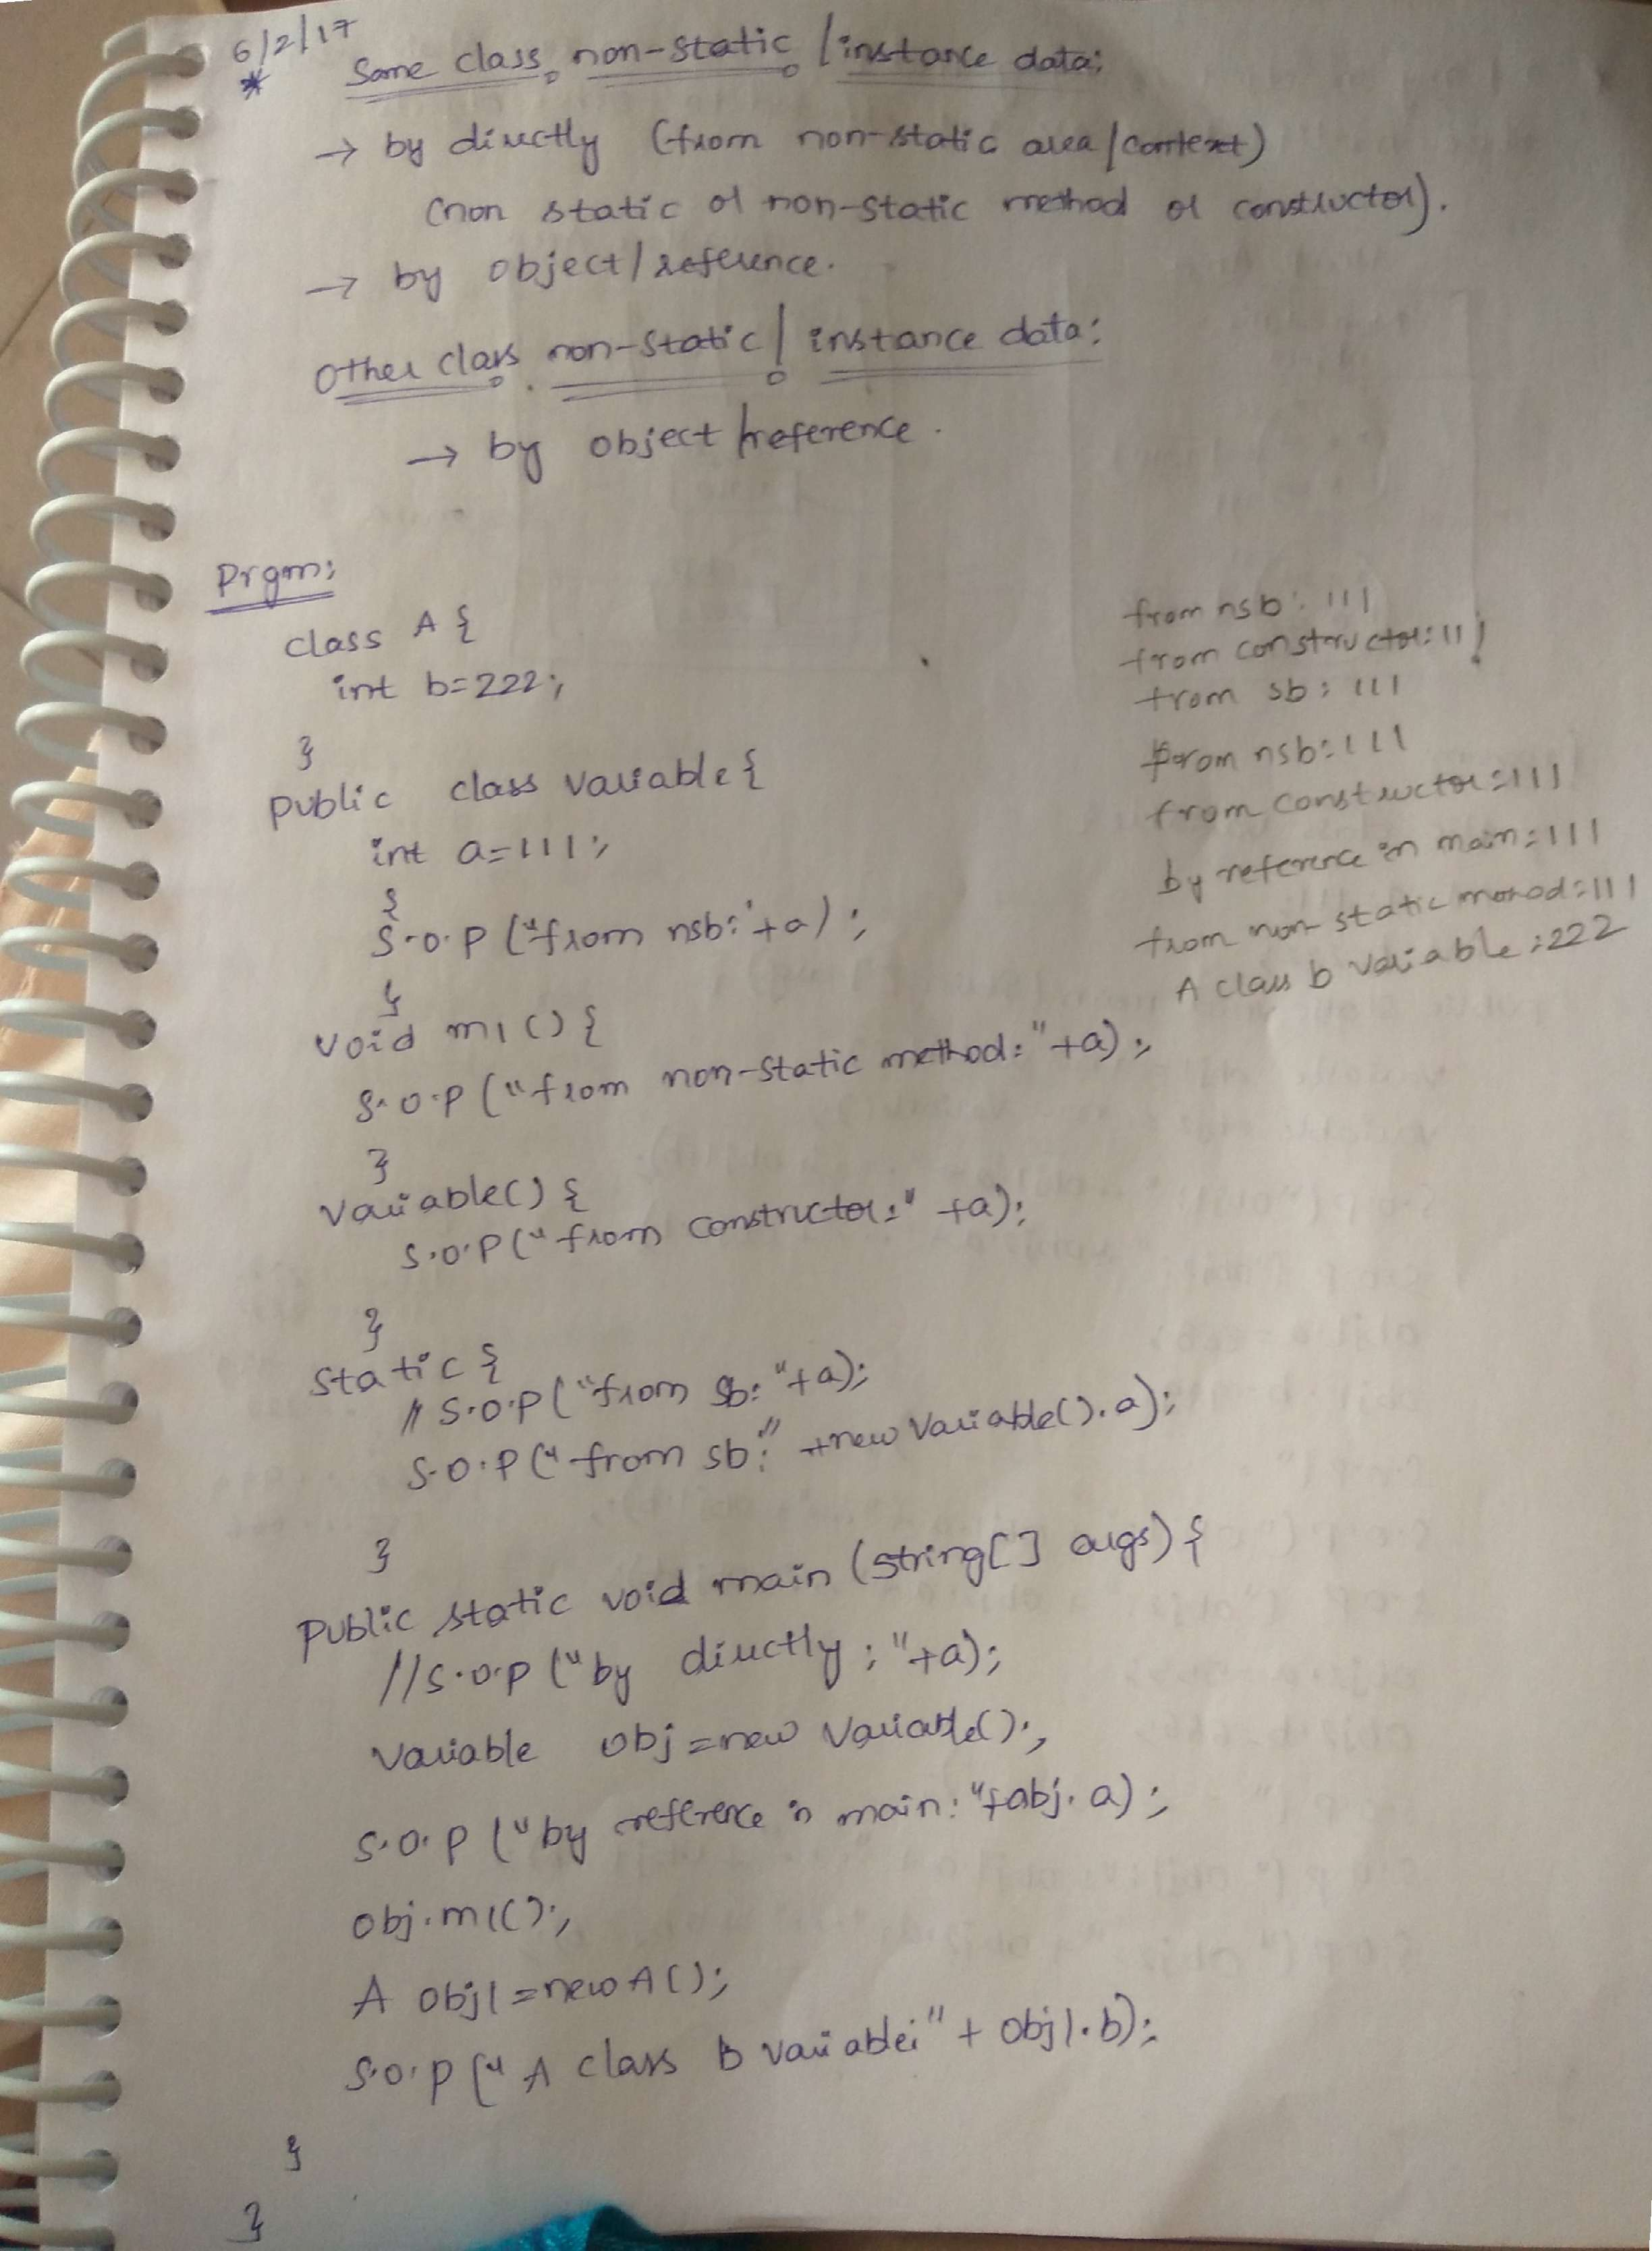 6/2/17
* Same class non-static / instance data:
→ by directly (from non-static area/context)
(non static or non-static method or constructor).
→ by object/reference.
Other class non-static / instance data:
→ by object/reference.
Prgm:
class A {
int b=222;
}
public class Variable {
int a=111;
{
S.O.P ("from nsb:"+a);
}
void m1() {
S.O.P ("from non-static method:"+a);
}
Variable() {
S.O.P ("from constructor:" +a);
}
static {
// S.O.P ("from sb: "+a);
S.O.P (" from sb:" +new Variable().a);
}
public static void main (String[] args) {
//S.O.P ("by directly ; "+a);
Variable obj=new Variable();
S.O.P ("by reference in main: "+obj.a);
obj.m1();
A obj1=new A();
S.O.P (" A class b variable:" + obj1.b);
}
}
from nsb: 111
from constructor: 111
from sb: 111
from nsb: 111
from constructor: 111
by reference in main: 111
from non-static mothod: 111
A class b variable: 222